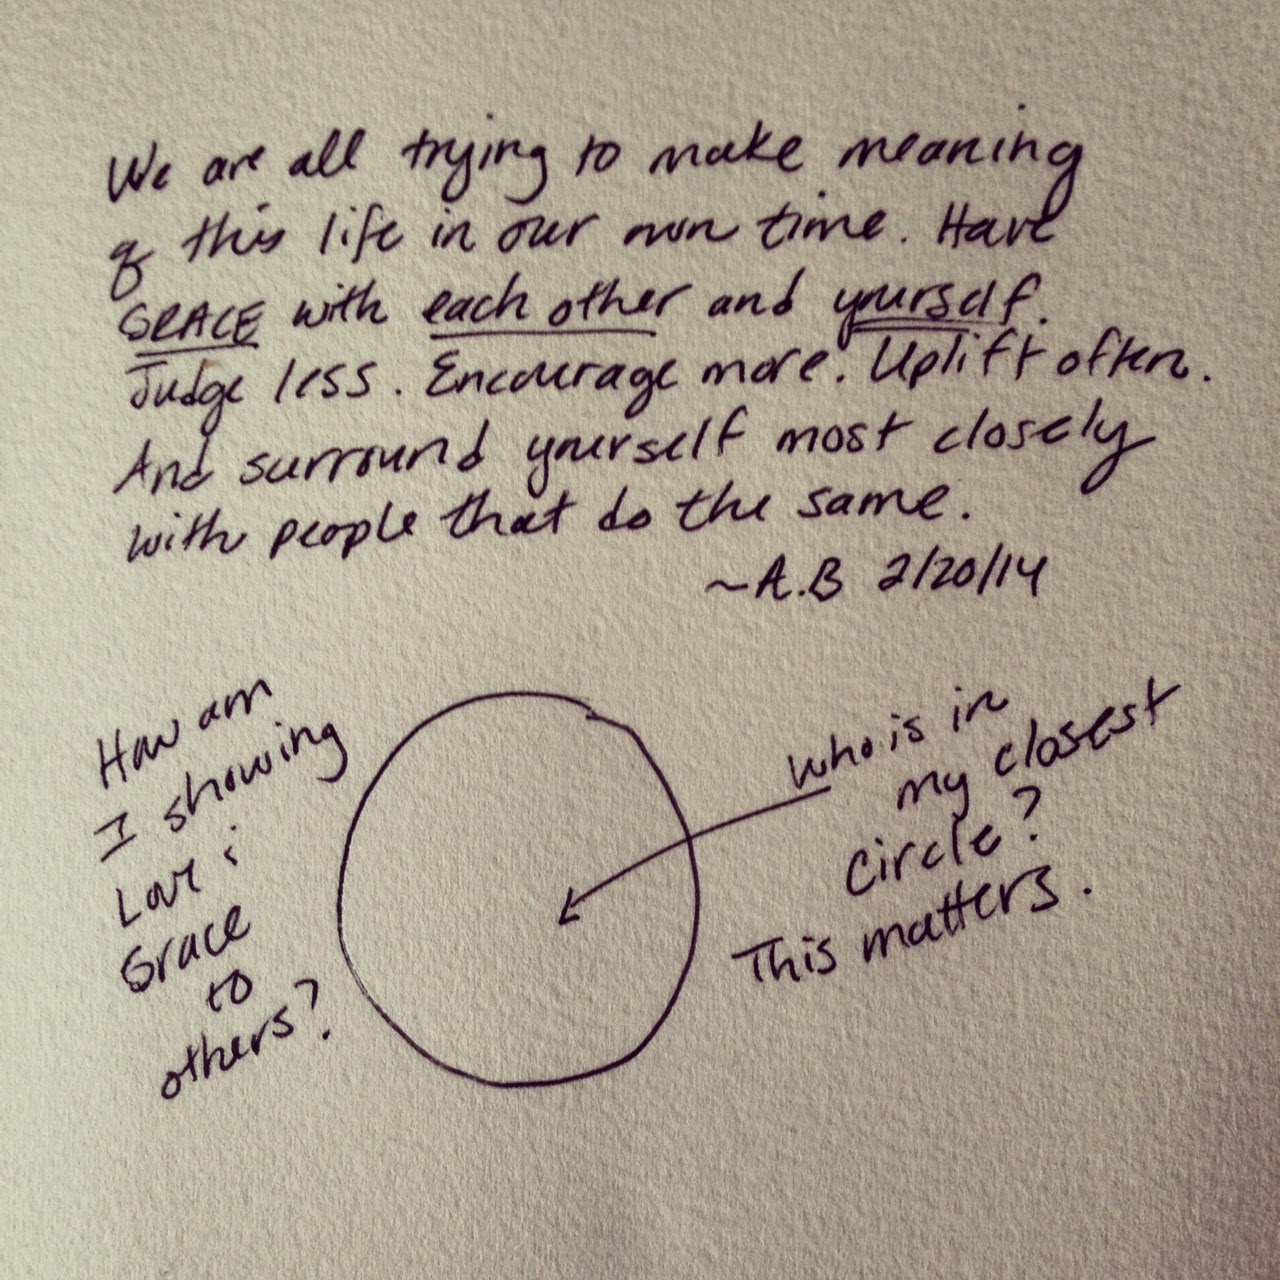 We are all trying to make meaning
of this life in our own time. Have
GRACE with each other and yourself.
Judge less. Encourage more. Uplift often.
And surround yourself most closely
with people that do the same.
~A.B 2/20/14
How am
I showing
Love &
Grace
to
others?
Who is in
my closest
Circle?
This matters.